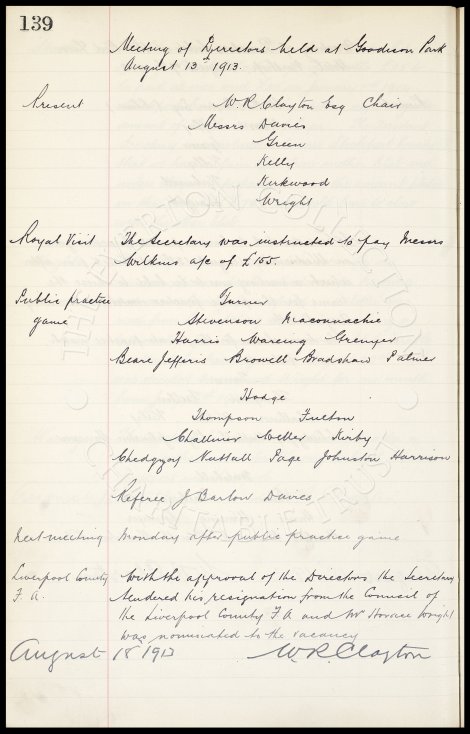 139
Meeting of Directors held at Goodison Park
August 13th 1913.
Present W R Clayton Esq Chair
Messrs Davies
Green
Kelly
Kirkwood
Wright
Royal Visit The Secretary was instructed to pay Messrs
Wilkins a/c of £155.
Public practice Turner
game Stevenson Maconnachie
Harris Wareing Grenyer
Beare Jefferis Browell Bradshaw Palmer
Hodge
Thompson Fulton
Challinor Weller Kirby
Chedgzoy Nuttall Page Johnston Harrison
Referee J Barlow Davies
Next meeting Monday after public practice game
Liverpool County With the approval of the Directors the Secretary
F. A. tendered his resignation from the Council of
the Liverpool County F A and Mr Horace Wright
was nominated to the vacancy
August 18th 1913 W.R. Clayton
THE EVERTON COLLECTION
CHARITABLE TRUST